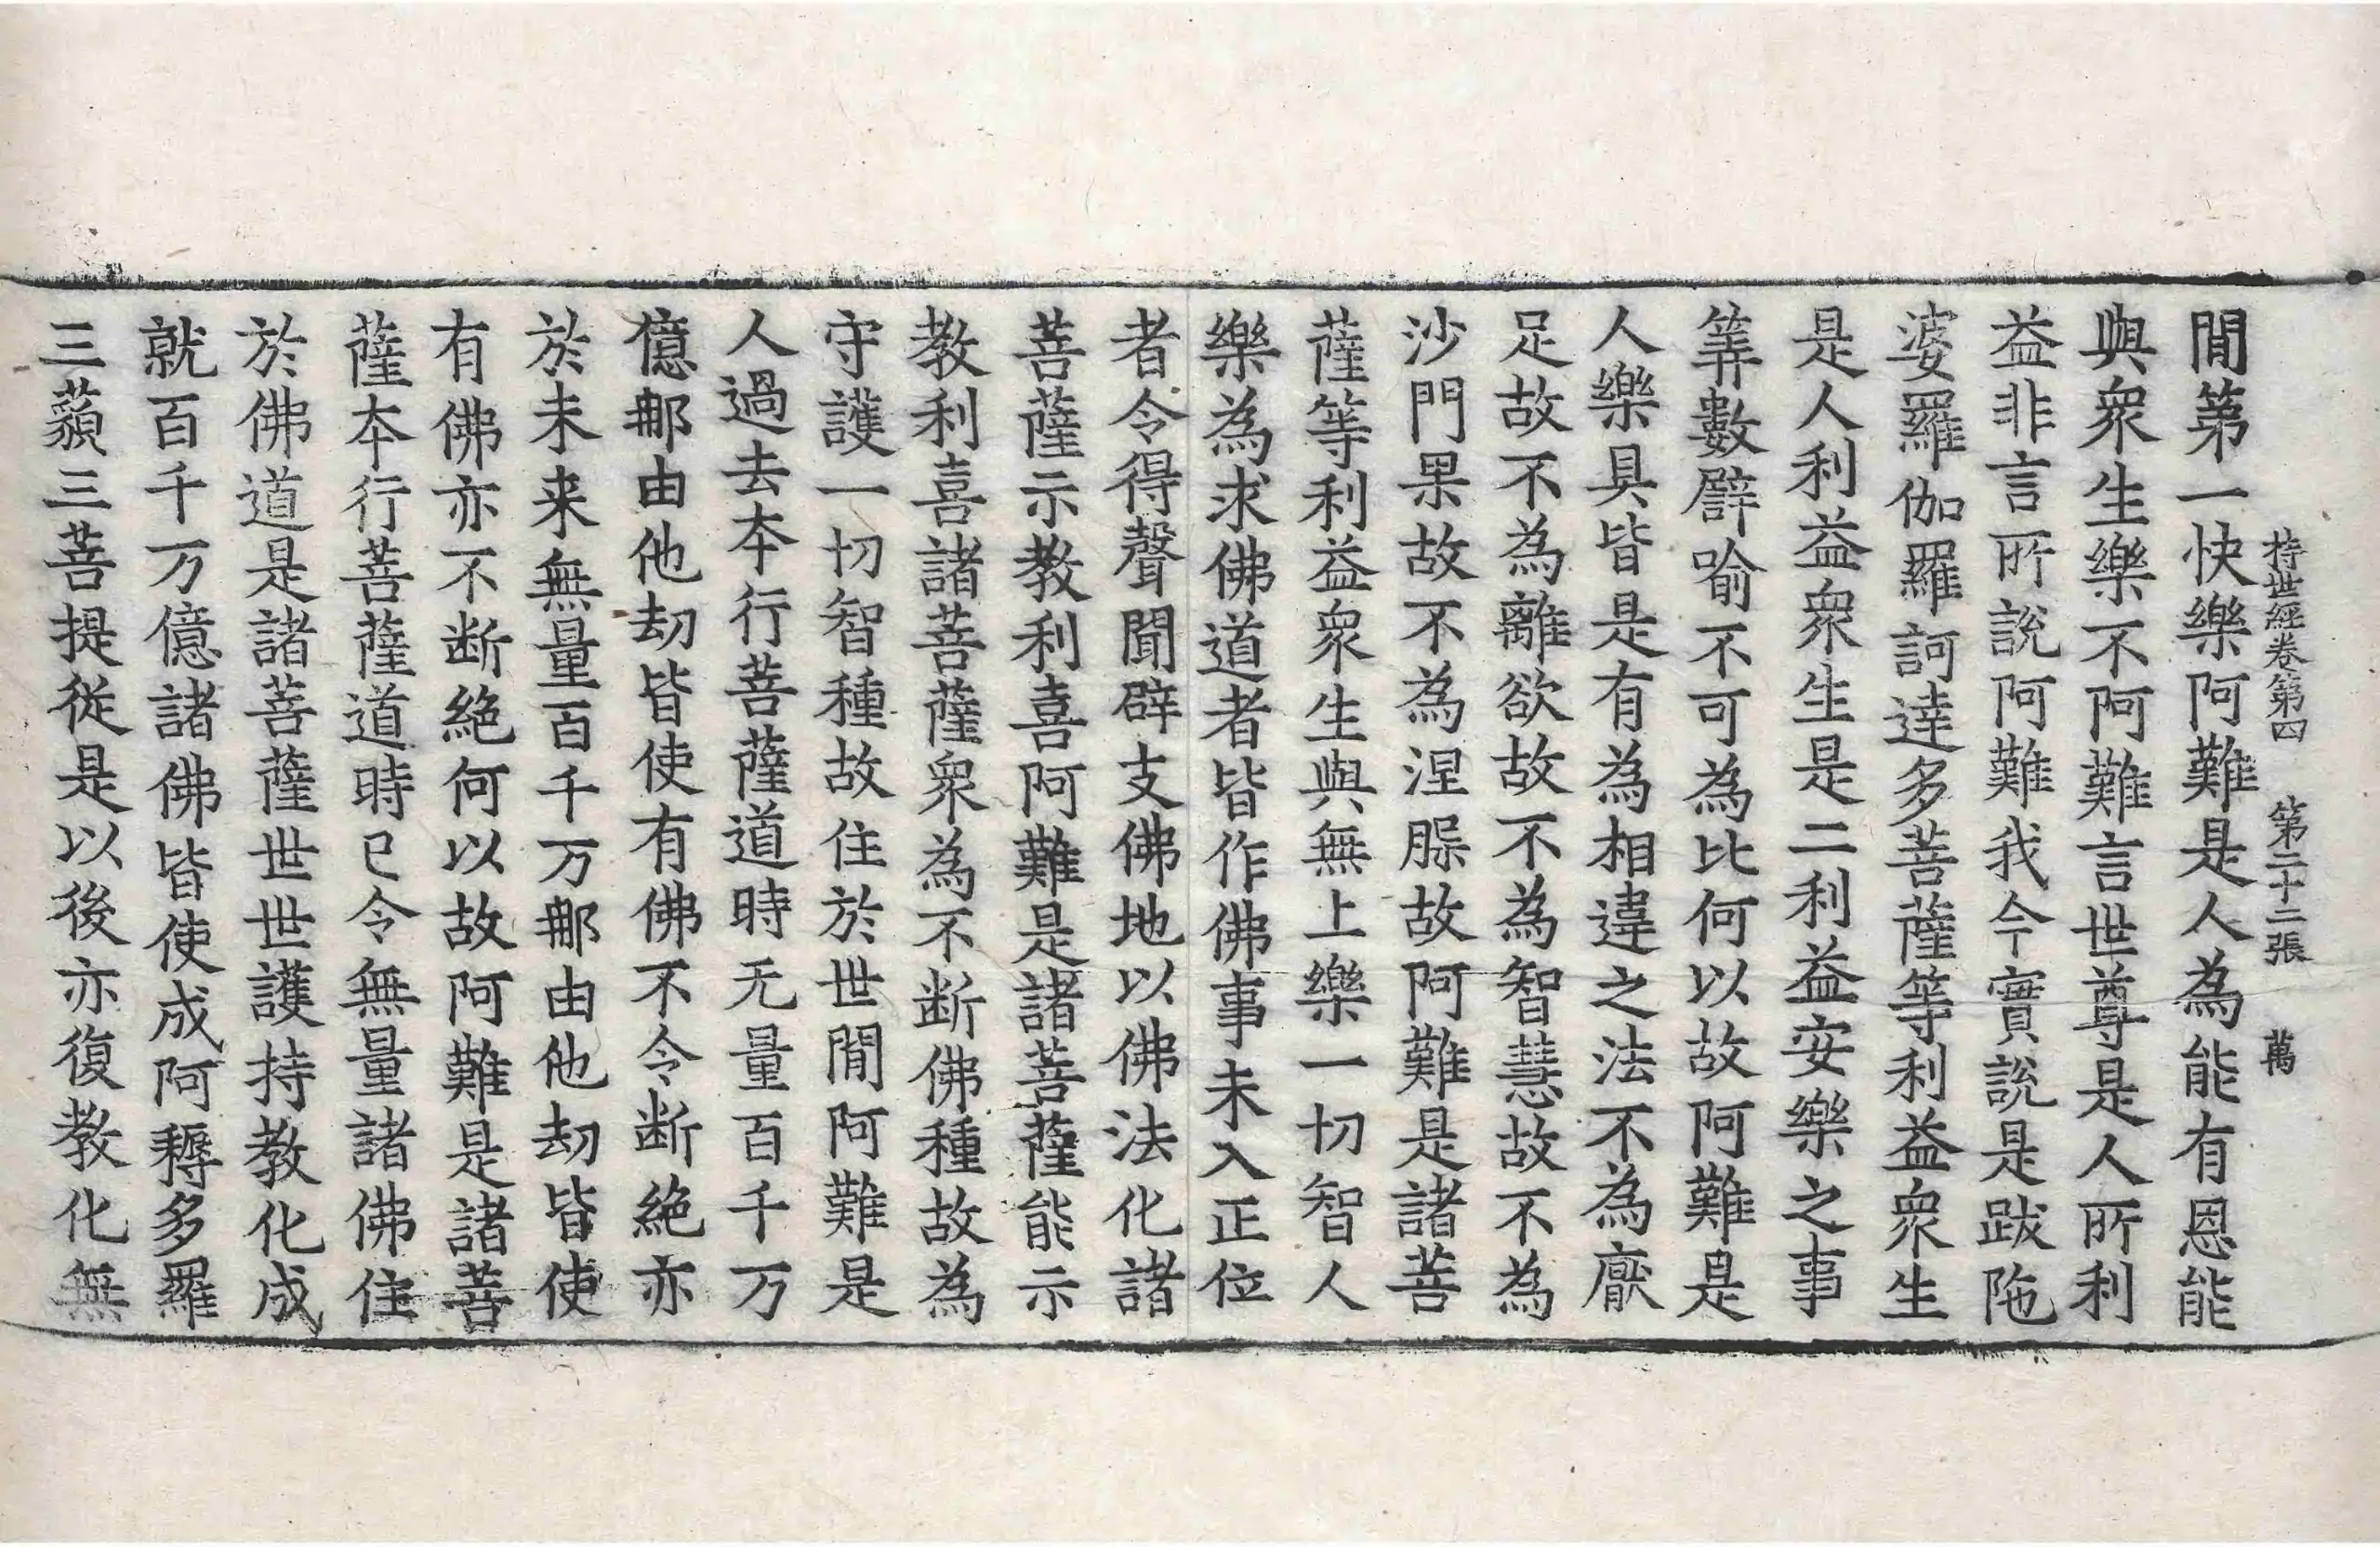 持世經卷第四　第二十二張　萬
閒第一快樂阿難是人為能有恩能
與衆生樂不阿難言世尊是人所利
益非言所說阿難我今實說是跋陁
婆羅伽羅訶達多菩薩等利益衆生
是人利益衆生是二利益安樂之事
筭數譬喻不可為比何以故阿難是
人樂具皆是有為相違之法不為厭
足故不為離欲故不為智慧故不為
沙門果故不為涅槃故阿難是諸菩
薩等利益衆生與無上樂一切智人
樂為求佛道者皆作佛事未入正位
者令得聲聞辟支佛地以佛法化諸
菩薩示教利喜阿難是諸菩薩能示
教利喜諸菩薩衆為不断佛種故為
守護一切智種故住於世閒阿難是
人過去夲行菩薩道時无量百千万
億那由他劫皆使有佛不令断絶亦
於未来無量百千万那由他劫皆使
有佛亦不断絶何以故阿難是諸菩
薩夲行菩薩道時已令無量諸佛住
於佛道是諸菩薩世世護持教化成
就百千万億諸佛皆使成阿耨多羅
三藐三菩提従是以後亦復教化無